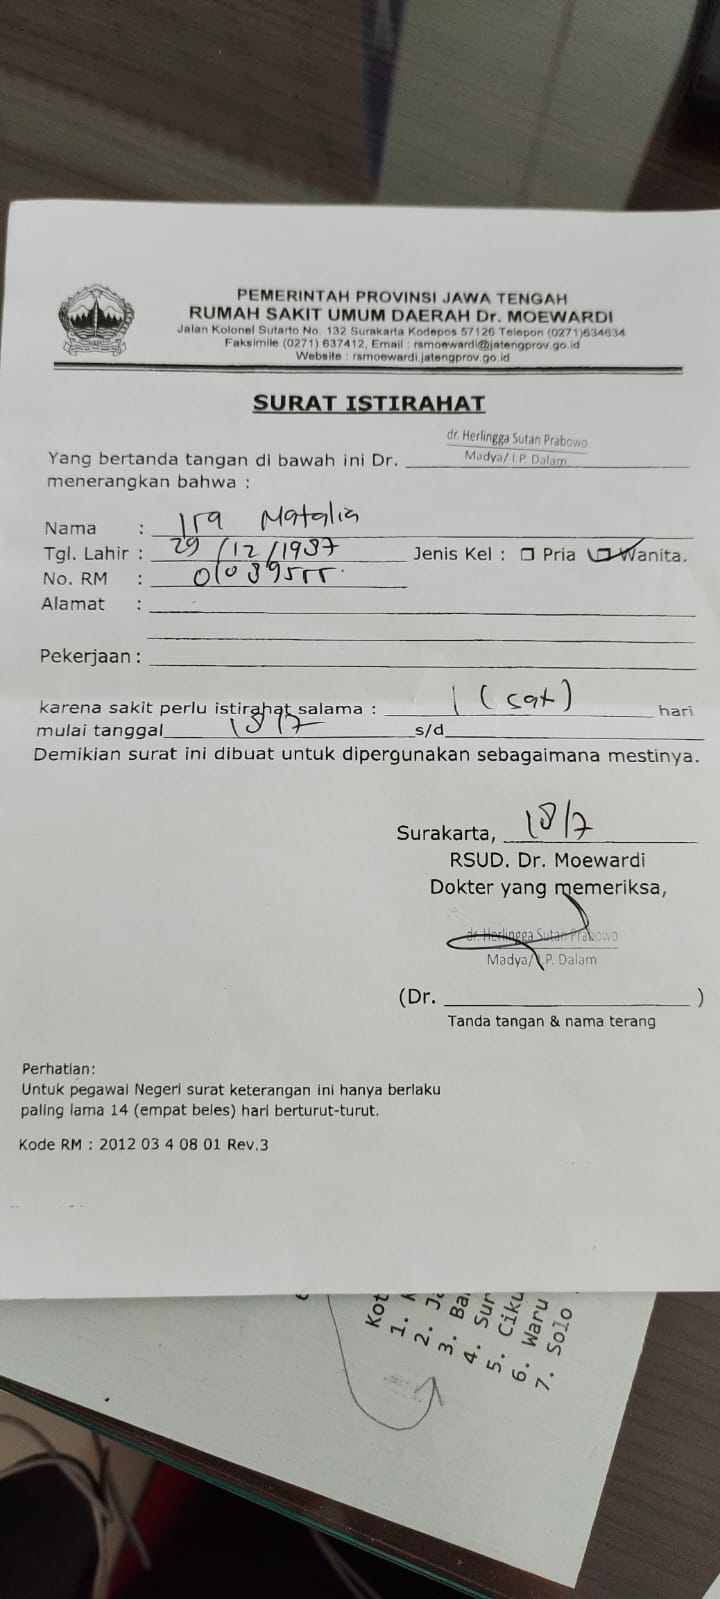 PEMERINTAH PROVINSI JAWA TENGAH
RUMAH SAKIT UMUM DAERAH Dr. MOEWARDI
Jalan Kolonel Sutarto No. 132 Surakarta Kodepos 57126 Telepon (0271)634634
Faksimile (0271) 637412, Email : rsmoewardi@jatengprov.go.id
Website : rsmoewardi.jatengprov.go.id
SURAT ISTIRAHAT
dr. Herlingga Sutan Prabowo
Madya/ I.P. Dalam
Yang bertanda tangan di bawah ini Dr.
menerangkan bahwa :
Nama : Ira Natalia
Tgl. Lahir : 29/12/1987 Jenis Kel : Pria Wanita.
No. RM : 01039555
Alamat :
Pekerjaan :
karena sakit perlu istirahat salama : 1 (satu) hari
mulai tanggal 18/7 s/d
Demikian surat ini dibuat untuk dipergunakan sebagaimana mestinya.
Surakarta, 18/7
RSUD. Dr. Moewardi
Dokter yang memeriksa,
dr. Herlingga Sutan Prabowo
Madya/ I.P. Dalam
(Dr. )
Tanda tangan & nama terang
Perhatian:
Untuk pegawai Negeri surat keterangan ini hanya berlaku
paling lama 14 (empat beles) hari berturut-turut.
Kode RM : 2012 03 4 08 01 Rev.3
Kot
1.
2. Ja
3. Ba
4. Sur
5. Ciku
6. Waru
7. Solo